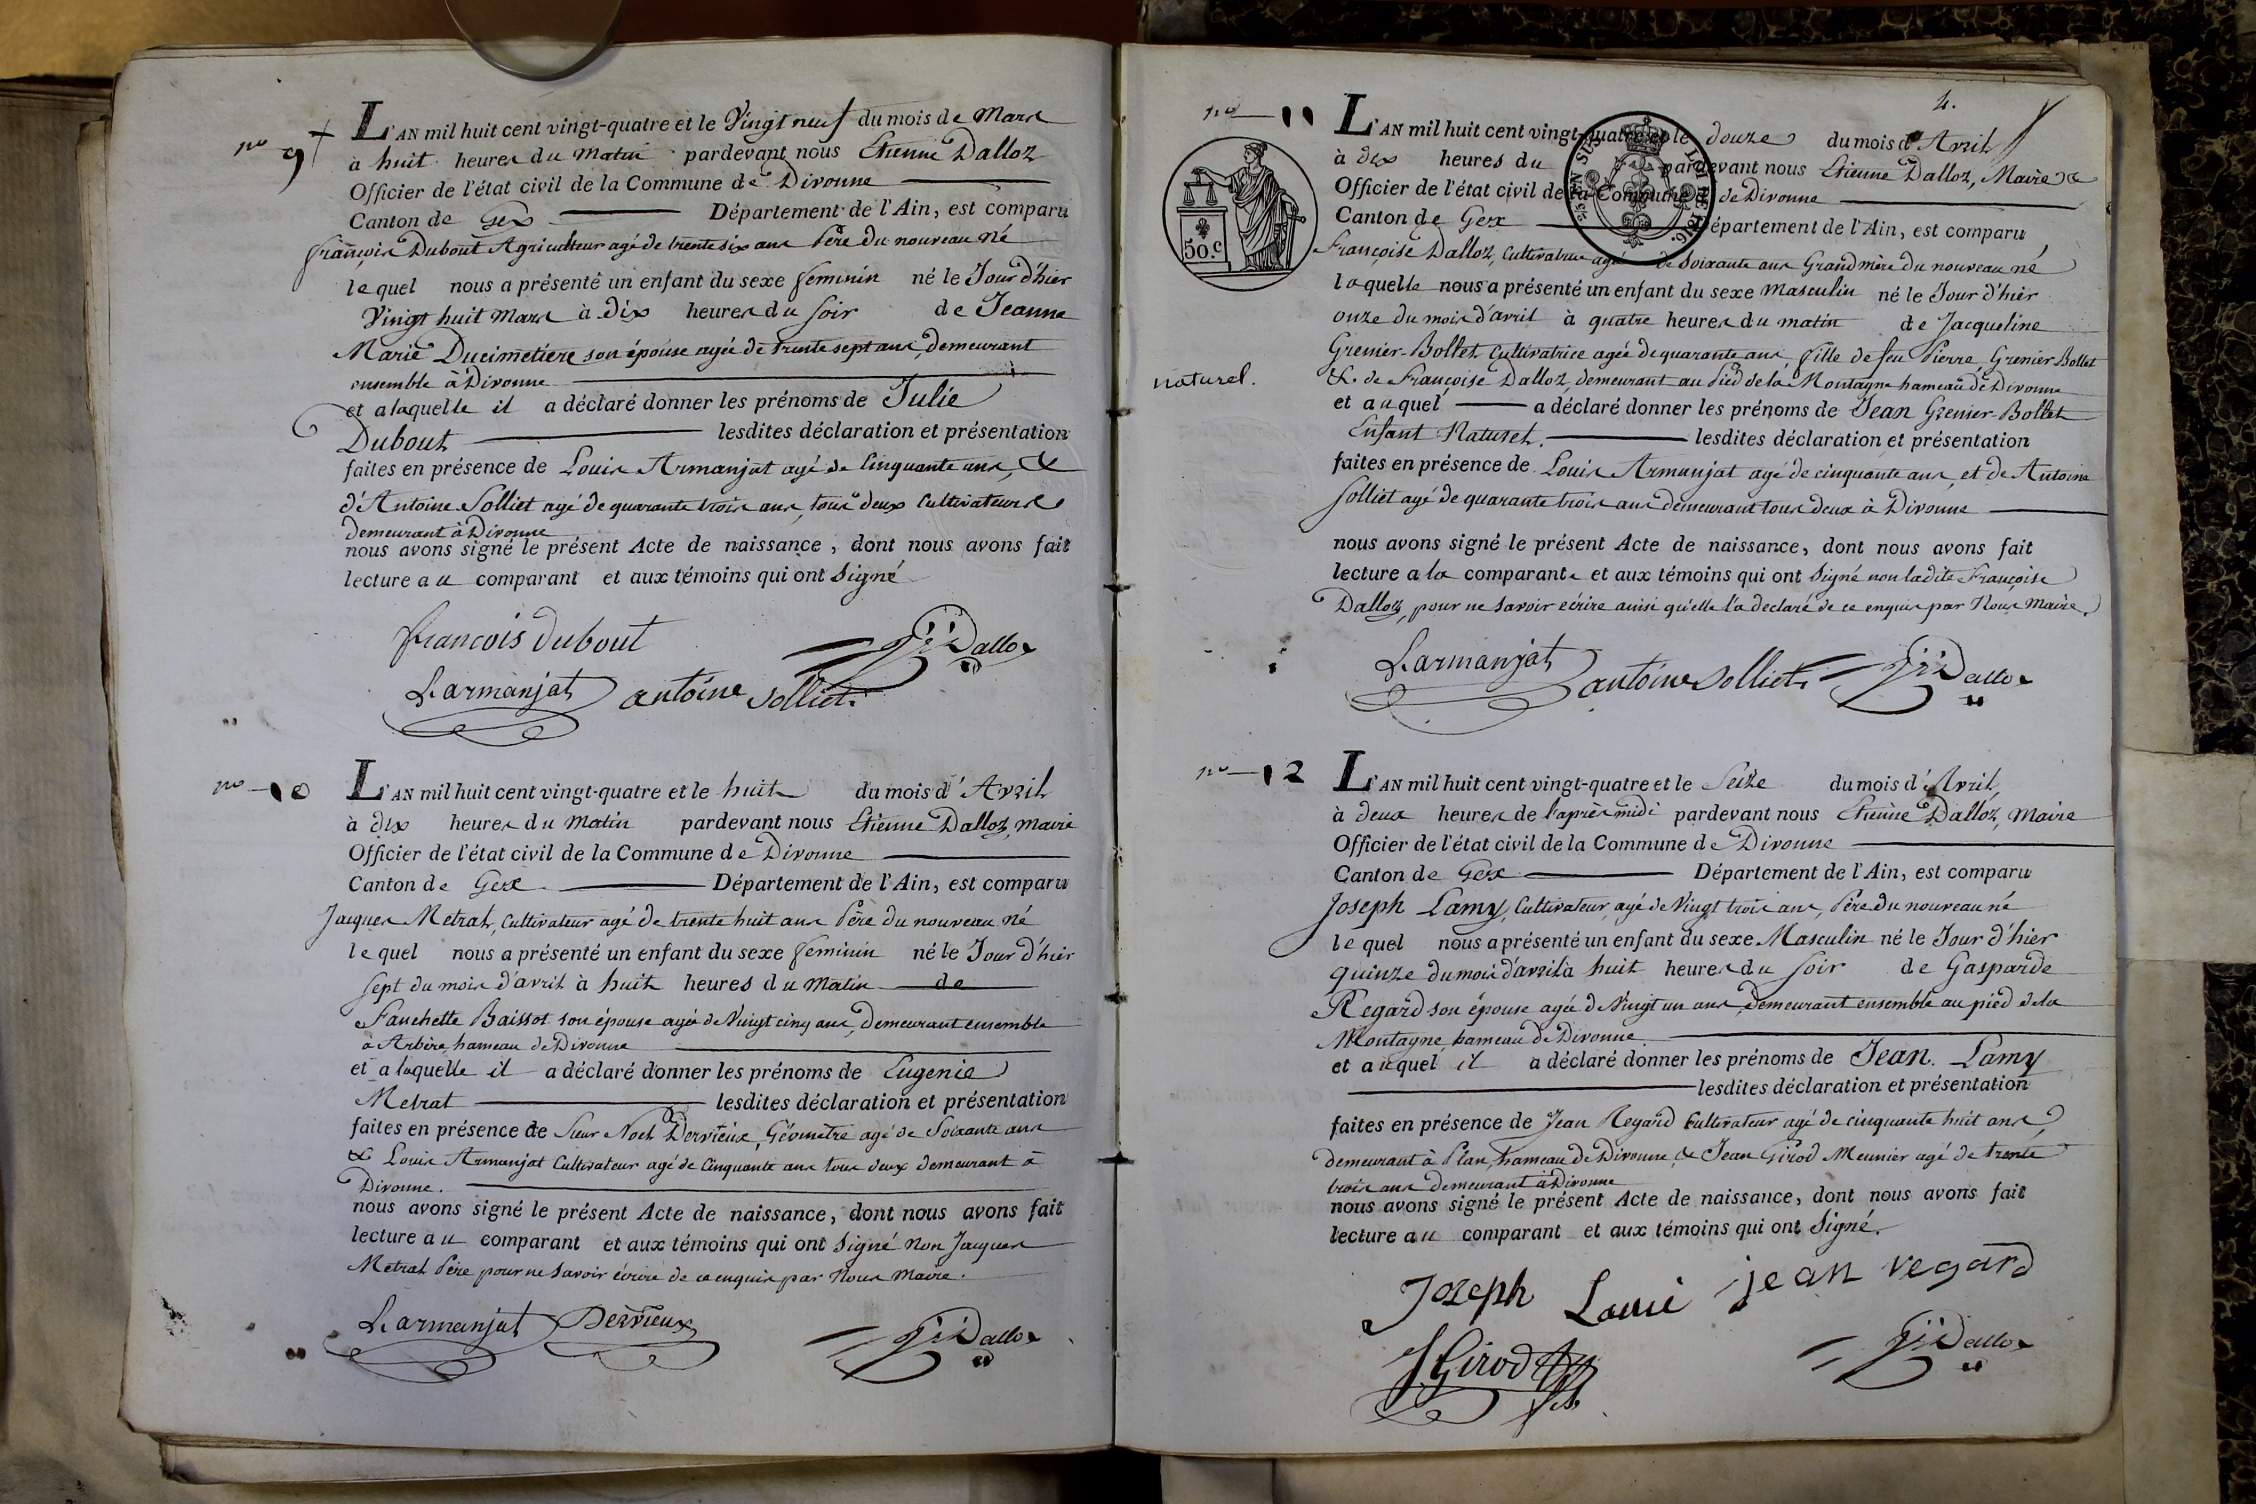 nº 9
L'AN mil huit cent vingt-quatre et le Vingt neuf du mois de Mars
à huit heures du Matin pardevant nous Etienne Dalloz
Officier de l'état civil de la Commune de Divonne
Canton de Gex Département de l'Ain, est comparu
François Dubout Agriculteur agé de trente six ans Père du nouveau né
lequel nous a présenté un enfant du sexe feminin né le Jour d'hier
Vingt huit Mars à dix heures du Soir de Jeanne
Marie Ducimetiere son épouse agée de trente sept ans, demeurant
ensemble à Divonne
et a laquelle il a déclaré donner les prénoms de Julie
Dubout lesdites déclaration et présentation
faites en présence de Louis Armanjat agé de Cinquante ans, &
d'Antoine Solliet agé de quarante trois ans, tous deux Cultivateurs
demeurant à Divonne
nous avons signé le présent Acte de naissance, dont nous avons fait
lecture au comparant et aux témoins qui ont Signé
françois dubout
Dalloz
L. armanjat antoine Solliet
nº 10
L'AN mil huit cent vingt-quatre et le huit du mois d'Avril
à dix heures du Matin pardevant nous Etienne Dalloz, maire
Officier de l'état civil de la Commune de Divonne
Canton de Gex Département de l'Ain, est comparu
Jacques Metral, Cultivateur agé de trente huit ans Père du nouveau né
lequel nous a présenté un enfant du sexe feminin né le Jour d'hier
Sept du mois d'avril à huit heures du Matin de
Fanchette Baissot son épouse agée de Vingt cinq ans, Demeurant ensemble
à Arbère, hameau de Divonne
et a laquelle il a déclaré donner les prénoms de Eugenie
Metral lesdites déclaration et présentation
faites en présence de Sieur Noel Dervieux, Géomètre agé de Soixante ans
& Louis Armanjat Cultivateur agé de Cinquante ans tous deux demeurant à
Divonne.
nous avons signé le présent Acte de naissance, dont nous avons fait
lecture au comparant et aux témoins qui ont Signé non Jacques
Metral Père pour ne Savoir écrire de ce enquis par Nous Maire.
L. armanjat Dervieux Dalloz
4.
nº 11
L'AN mil huit cent vingt-quatre et le douze du mois d'Avril
à dix heures du pardevant nous Etienne Dalloz, Maire
Officier de l'état civil de la Commune de Divonne
Canton de Gex Département de l'Ain, est comparu
50.c
Françoise Dalloz, Cultivatrice agée de Soixante ans Grand mère du nouveau né
laquelle nous a présenté un enfant du sexe Masculin né le Jour d'hier
onze du mois d'avril à quatre heures du matin de Jacqueline
Grenier-Bollet Cultivatrice agée de quarante ans, fille de feu Pierre Grenier Bollet
&. de Françoise Dalloz, demeurant au Pied de la Montagne hameau de Divonne
naturel.
et auquel a déclaré donner les prénoms de Jean Grenier-Bollet
Enfant Naturel. lesdites déclaration et présentation
faites en présence de Louis Armanjat agé de cinquante ans, et de Antoine
Solliet agé de quarante trois ans demeurant tous deux à Divonne
nous avons signé le présent Acte de naissance, dont nous avons fait
lecture a la comparante et aux témoins qui ont Signé non ladite Françoise
Dalloz, pour ne Savoir écrire ainsi qu'elle l'a declaré de ce enquis par Nous Maire.
L. armanjat antoine Solliet Dalloz
nº 12
L'AN mil huit cent vingt-quatre et le Seize du mois d'Avril
à deux heures de l'après midi pardevant nous Etienne Dalloz, Maire
Officier de l'état civil de la Commune de Divonne
Canton de Gex Département de l'Ain, est comparu
Joseph Lamy, Cultivateur, agé de Vingt trois ans, Père du nouveau né
lequel nous a présenté un enfant du sexe Masculin né le Jour d'hier
quinze du mois d'avril à huit heures du Soir de Gasparde
Regard son épouse agée de Vingt un ans, Demeurant ensemble au pied de la
Montagne, hameau de Divonne.
et auquel il a déclaré donner les prénoms de Jean. Lamy
lesdites déclaration et présentation
faites en présence de Jean Regard Cultivateur agé de cinquante huit ans,
demeurant à Plan, hameau de Divonne, & Jean Girod Meunier agé de trente
trois ans demeurant à Divonne
nous avons signé le présent Acte de naissance, dont nous avons fait
lecture au comparant et aux témoins qui ont Signé.
Joseph Lami jean regard
J Girod Dalloz